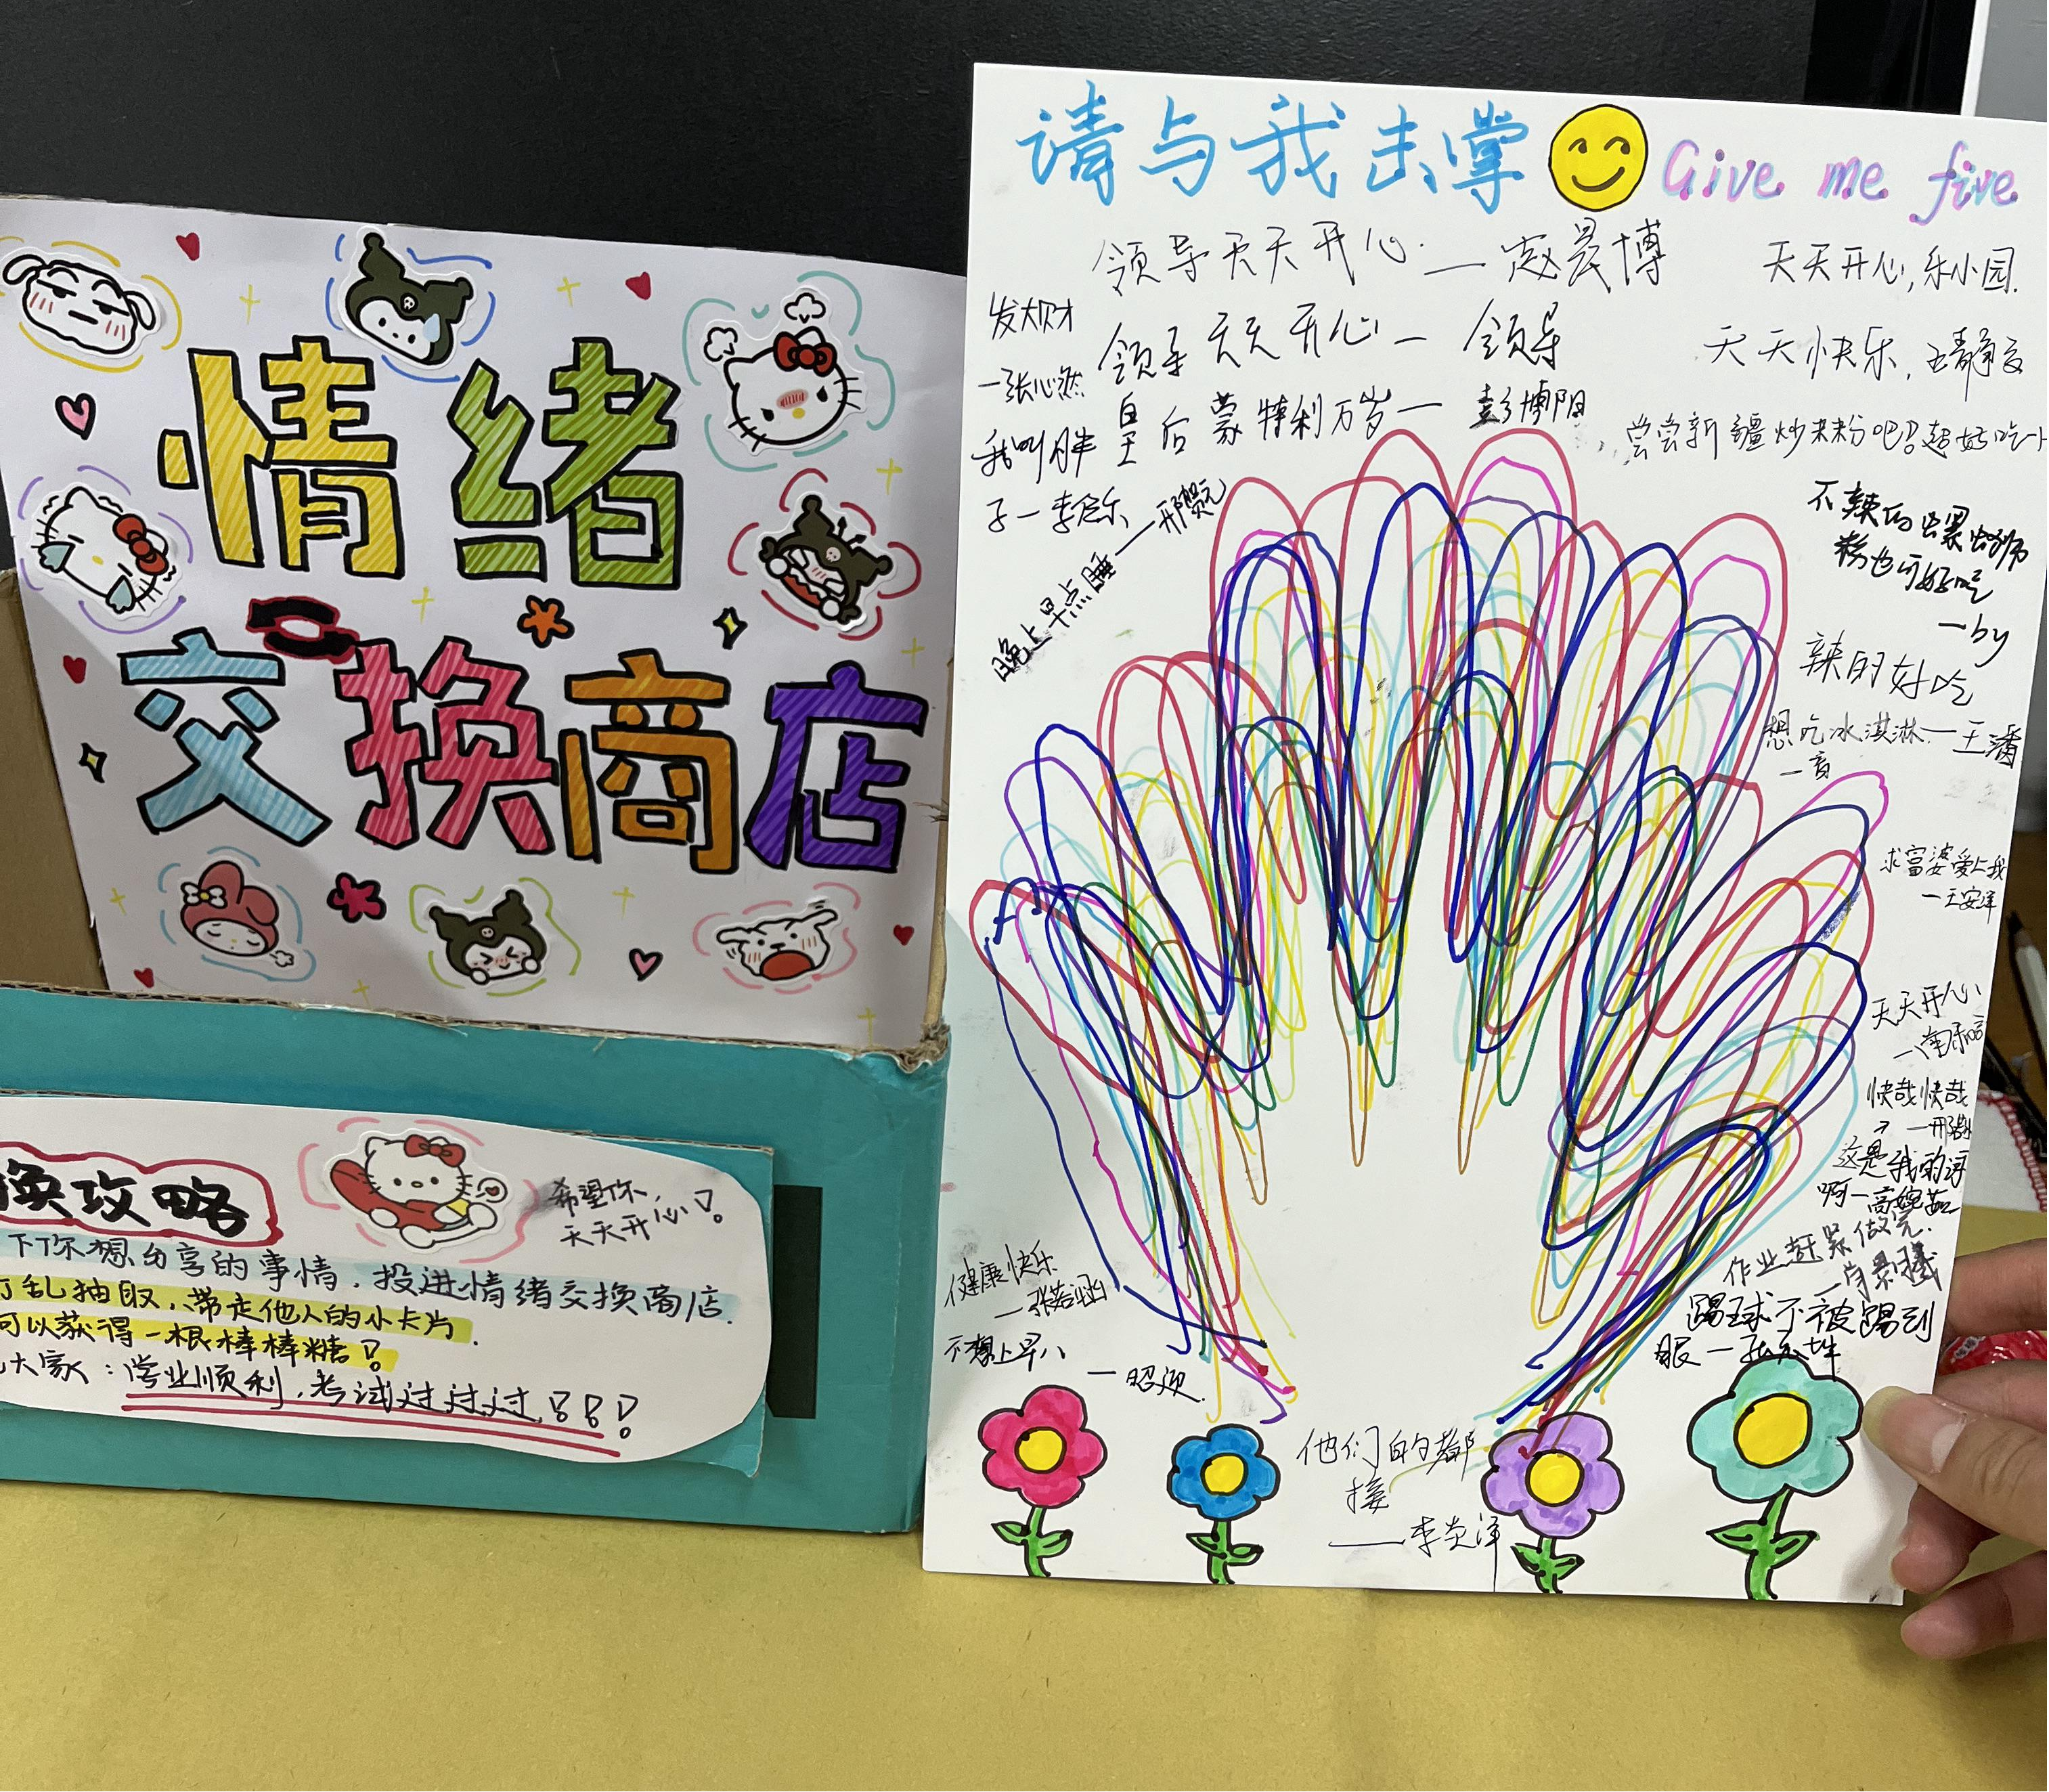 情绪
交换商店
换攻略
希望你,
天天开心!
下你想分享的事情,投进情绪交换商店
乱抽取,带走他人的小卡片.
可以获得一根棒棒糖!
大家:学业顺利,考试过过过!!!
请与我击掌 Give me five
领导天天开心.—赵晨博
天天开心,乐小园.
发大财
—张心然
领导天天开心—领导
天天快乐,
皇后蒙特利万岁—彭博阳
尝尝新疆炒米粉吧!超好吃
我叫胖
子—李启乐
晚上早点睡——邢
不辣的螺蛳
粉也可好吃
—by
辣的好吃
想吃冰淇淋.—王
求富婆爱上我
—王安洋
天天开心
快哉快哉
这是我的词
啊—高婉茹
作业赶紧做完.
踢球不被踢到
眼—
健康快乐
—张若涵
不想上早八
—昭
他们的都
接
——李炎泽